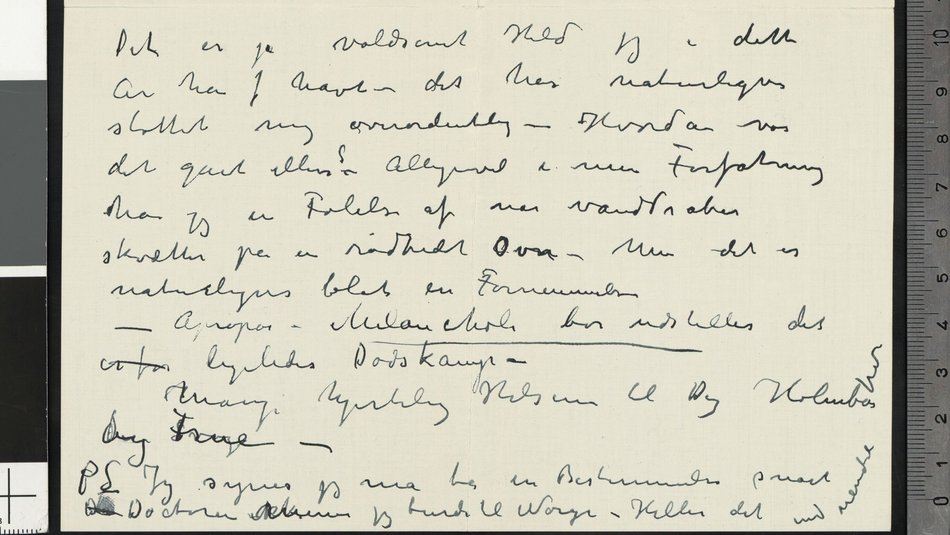 Det er jo voldsomt Held jeg i dette
Aar har havt – det har naturligvis
støttet mig overordentlig – Hvordan var
det gaat ellers? – Alligevel i min Forfatning
har jeg en Følelse af når vanddraaber
skvætter på en rødhedt Ovn – Men det er
naturligvis blot en Fornemmelse
– Apropos – Melancholi bør udstilles det
ligeledes Dødskamp –
Mange hjertelig Hilsener til Dig Holmboe
Thor
og Frue –
PS Jeg synes jeg må ta en Bestemmelse snart
Doctoren jeg burde til Norge – Heller det